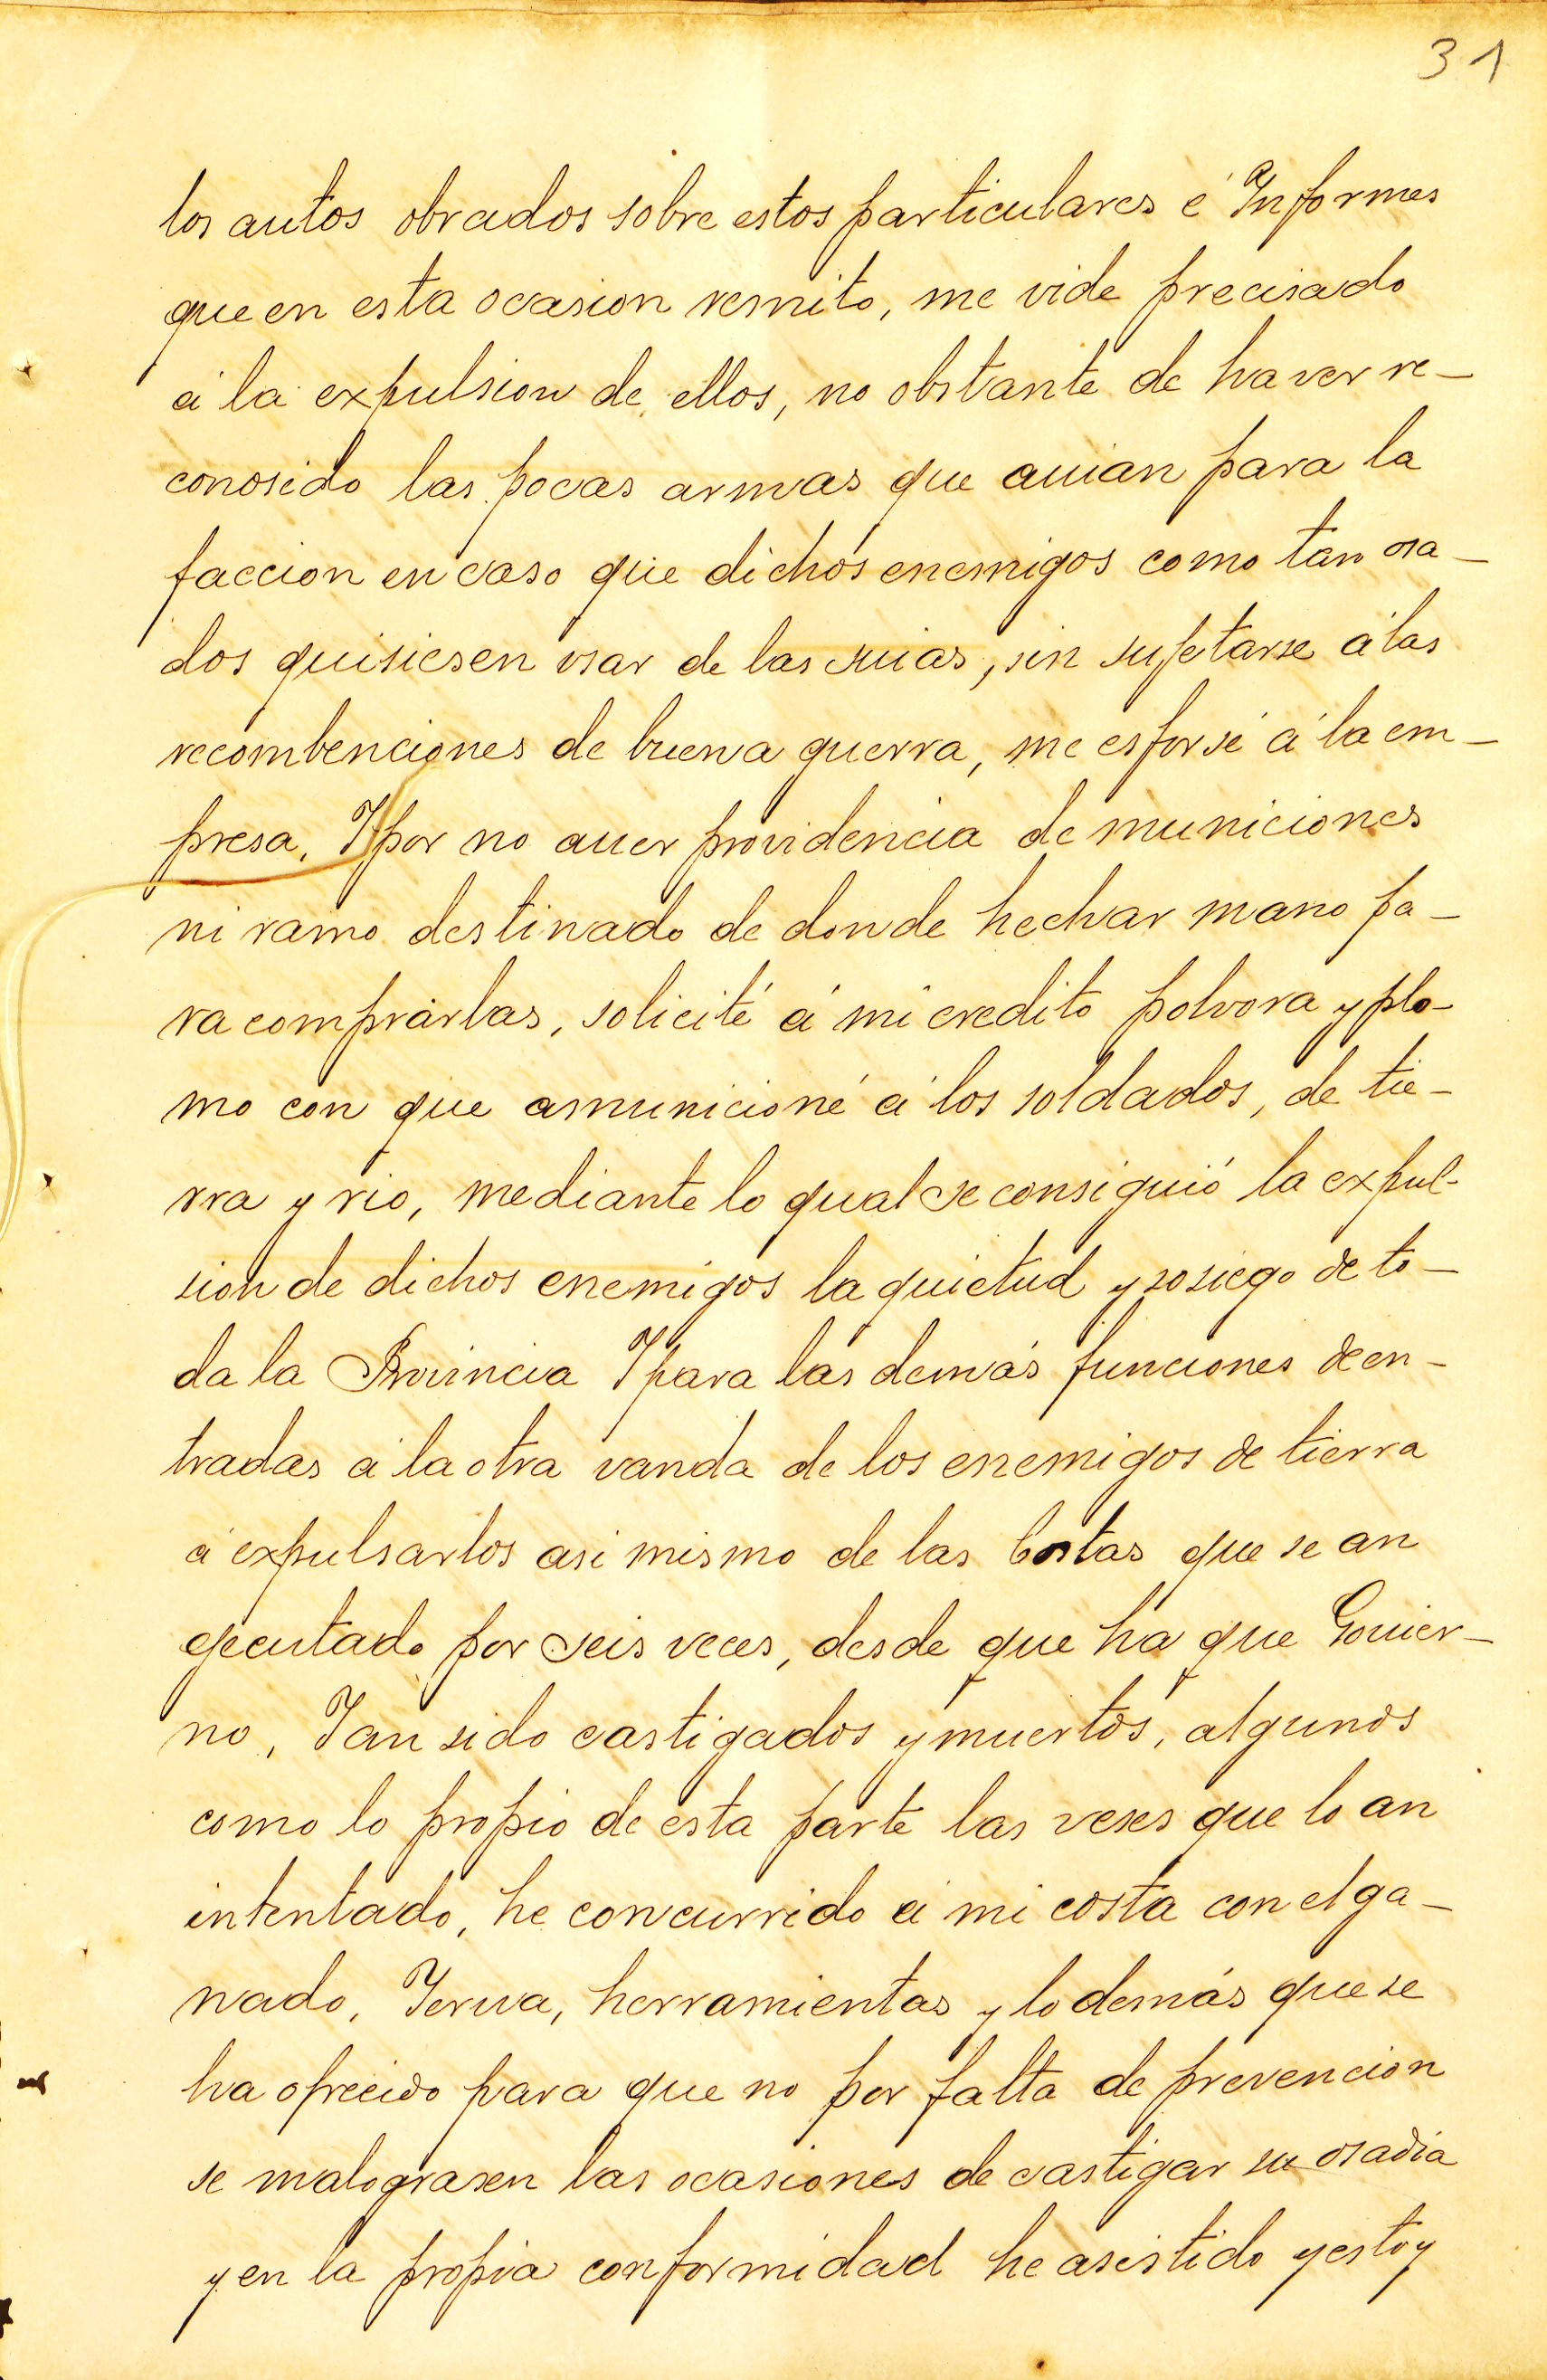 31
los autos obrados sobre estos particulares é Informes
que en esta ocasion remito, me vide precisado
á la expulsion de ellos, no obstante de haver re-
conosido las pocas armas que auian para la
faccion en caso que dichos enemigos como tan osa-
dos quisiesen usar de las suias, sin sujetarse á las
recombenciones de buena guerra, me esforsé á la em-
presa, Y por no auer providencia de municiones
ni ramo destinado de donde hechar mano pa-
ra comprarlas, solicité á mi credito polvora y plo-
mo con que amunicioné á los soldados, de tie-
rra y rio, mediante lo qual se consiguió la expul-
sion de dichos enemigos la quietud y sosiego de to-
da la Provincia Y para las demás funciones de en-
tradas á la otra vanda de los enemigos de tierra
á expulsarlos asi mismo de las Costas que se an
ejecutado por seis veces, desde que ha que Gouier-
no, Y an sido castigados y muertos, algunos
como lo propio de esta parte las veses que lo an
intentado, he concurrido á mi costa con el ga-
nado, Yerva, herramientas y lo demás que se
ha ofrecido para que no por falta de prevencion
se malograsen las ocasiones de castigar su osadia
y en la propia conformidad he asistido y estoy